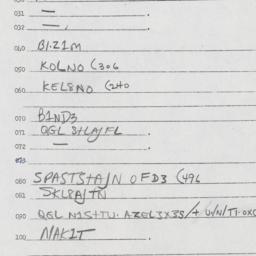 031 — .
032 — , .
040 B1.Z1M
050 KOLNO (306
060 KELSNO (240
070 B1ND3
071 QGL S+LAJFL .
072 — .
073
080 SPASTS+AJN OFD3 (496
081 SKLRAJTN
090 QGL N1S+TU. AZEL3X3S/+
100 NAK1T .